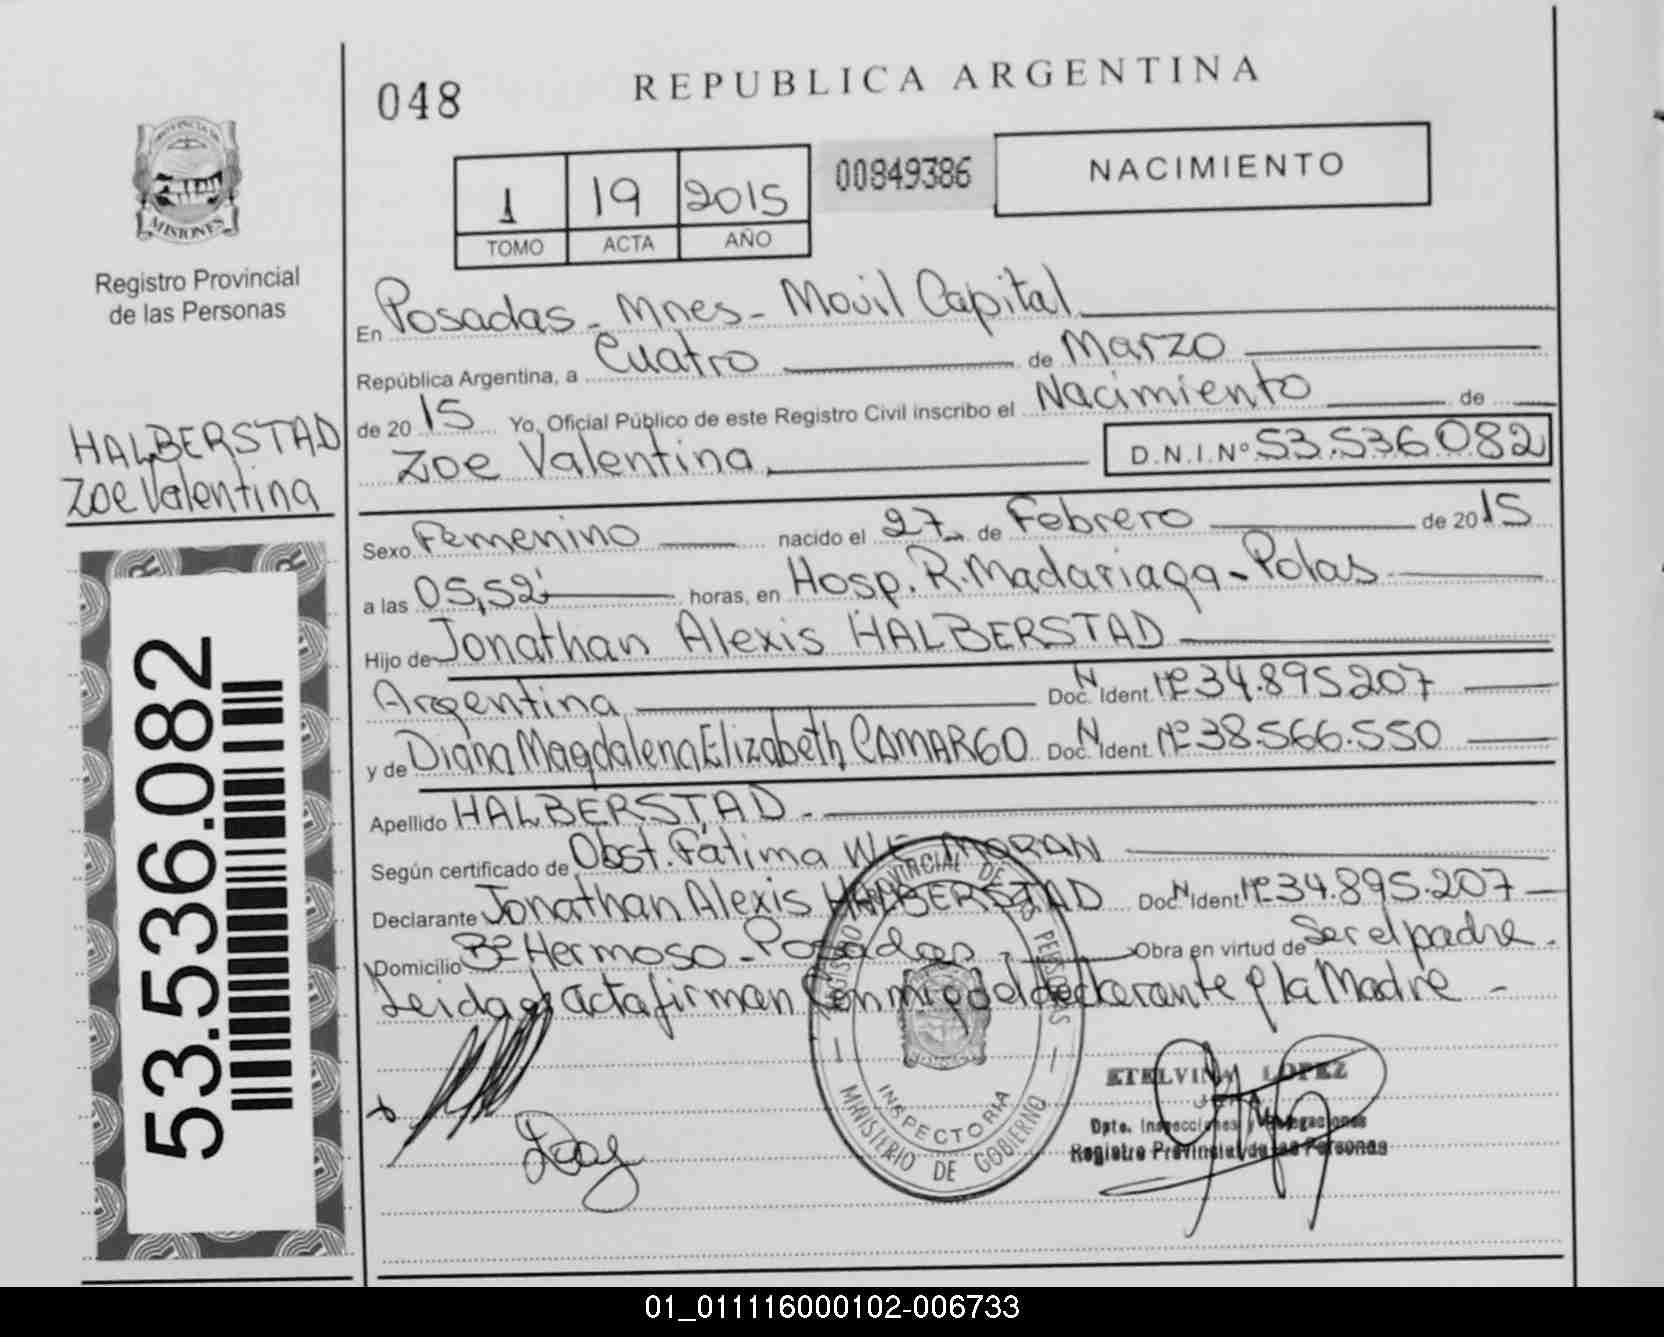 048
REPUBLICA ARGENTINA
PROVINCIA DE
MISIONES
Registro Provincial
de las Personas
1 19 2015
TOMO ACTA AÑO
00849386
NACIMIENTO
En Posadas - Mnes - Movil Capital
República Argentina, a Cuatro de Marzo
de 2015 Yo, Oficial Público de este Registro Civil inscribo el Nacimiento de
Zoe Valentina D.N.I.Nº 53.536.082
HALBERSTAD
Zoe Valentina
Sexo Femenino nacido el 27 de Febrero de 2015
a las 05,52' horas, en Hosp. R. Madariaga - Polas
Hijo de Jonathan Alexis HALBERSTAD
Argentina Doc. N Ident. Nº 34.895.207
y de Diana Magdalena Elizabeth CAMARGO Doc. N Ident. Nº 38.566.550
Apellido HALBERSTAD
Según certificado de Obst. Fátima MORAN
Declarante Jonathan Alexis HALBERSTAD Doc. N Ident. Nº 34.895.207
Domicilio Bº Hermoso - Posadas - Obra en virtud de Ser el padre -
Leida el acta firman Conmigo el declarante y la Madre -
53.536.082
MINISTERIO DE GOBIERNO
INSPECTORIA
ETELVINA LOPEZ
Dpto. Inspecciones y Delegaciones
Registro Provincial de las Personas
01_011116000102-006733